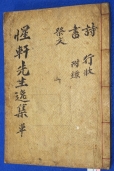 詩 行狀
書 附錄
祭文
惺軒先生逸集 單